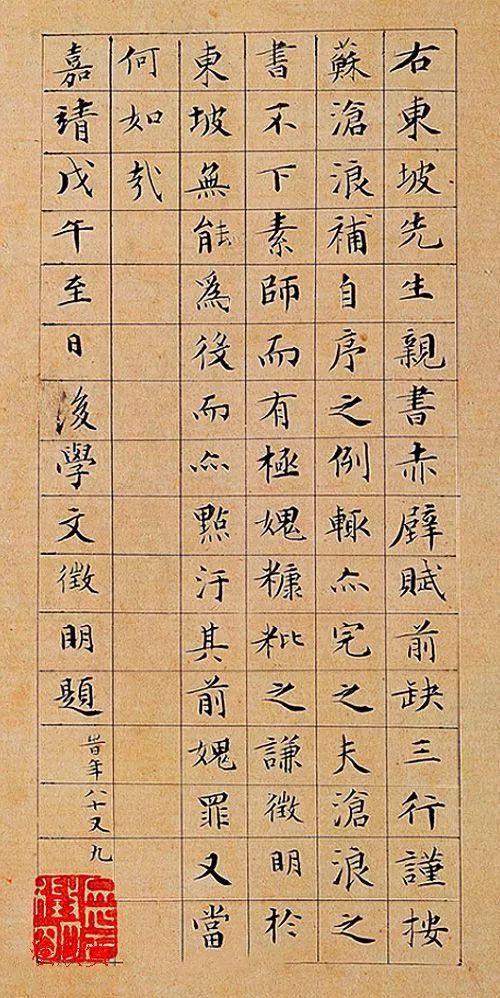 右東坡先生親書赤壁賦前缺三行謹按
蘇滄浪補自序之例輒亦完之夫滄浪之
書不下素師而有極媿糠粃之謙徵明於
東坡無能爲役而亦點汙其前媿罪又當
何如哉
嘉靖戊午至日後學文徵明題旹年八十又九